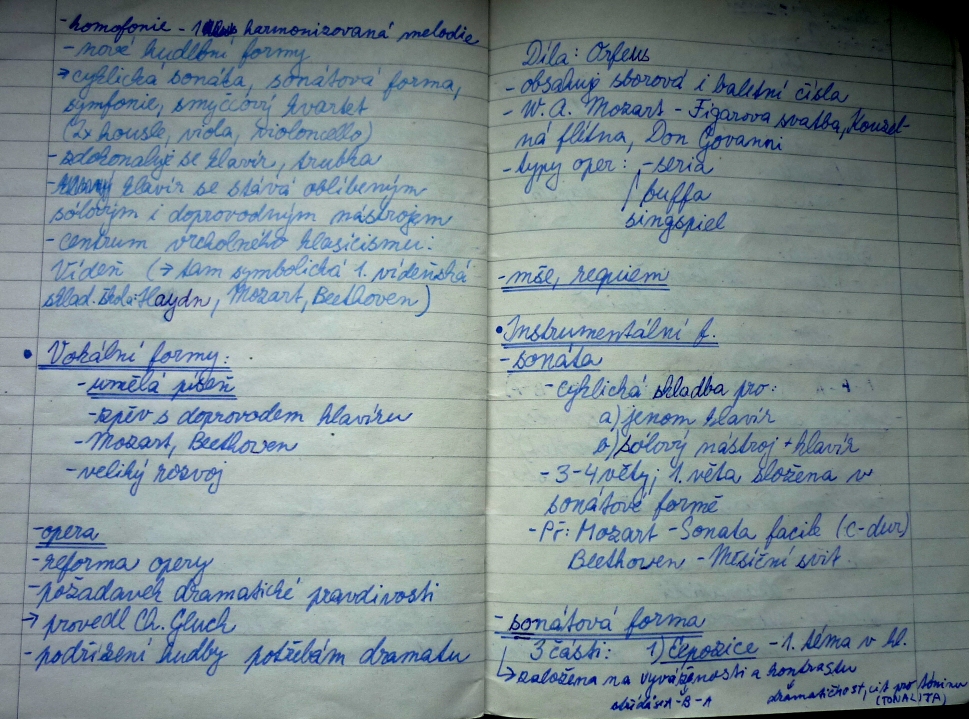 - homofonie - harmonizovaná melodie
- nové hudební formy
→ cyklická sonáta, sonátová forma,
symfonie, smyčcový kvartet
(2x housle, viola, violoncello)
- zdokonaluje se klavír, trubka
- klavír se stává oblíbeným
sólovým i doprovodným nástrojem
- centrum vrcholného klasicismu:
Vídeň (→ tam symbolická 1. vídeňská
sklad. škola: Haydn, Mozart, Beethoven)
• Vokální formy:
- umělá píseň
- zpěv s doprovodem klavíru
- Mozart, Beethoven
- veliký rozvoj
- opera
- reforma opery
- požadavek dramatické pravdivosti
→ provedl Ch. Gluck
- podřízení hudby potřebám dramatu
Díla: Orfeus
- obsahují sborová i baletní čísla
- W. A. Mozart - Figarova svatba, Kouzel-
ná flétna, Don Govanni
- typy oper: - seria
buffa
singspiel
- mše, requiem
• Instrumentální f.
- sonáta
- cyklická skladba pro:
a) jenom klavír
b) sólový nástroj + klavír
- 3-4 věty; 1. věta složena v
sonátové formě
- Př: Mozart - Sonata facile (C-dur)
Beethoven - Měsíční svit
- sonátová forma
3 části: 1) Expozice - 1. téma v hl.
→ založena na vyváženosti a kontrastu
A-B-A
dramatičnost, cit pro tóninu
(TONALITA)